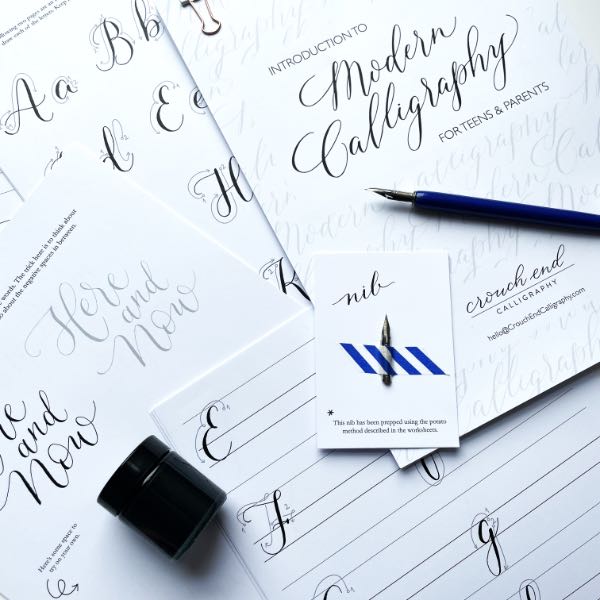 following two pages are an
draw each of the letters. Keep
B b
A a
E e
H
K
INTRODUCTION TO
Modern
Calligraphy
FOR TEENS & PARENTS
crouch end
CALLIGRAPHY
hello@CrouchEndCalligraphy.com
nib
* This nib has been prepped using the potato
method described in the worksheets.
words. The trick here is to think about
about the negative spaces in between.
Here
and
Now
and
Now
Here's some space to
try on your own.
E
F
g